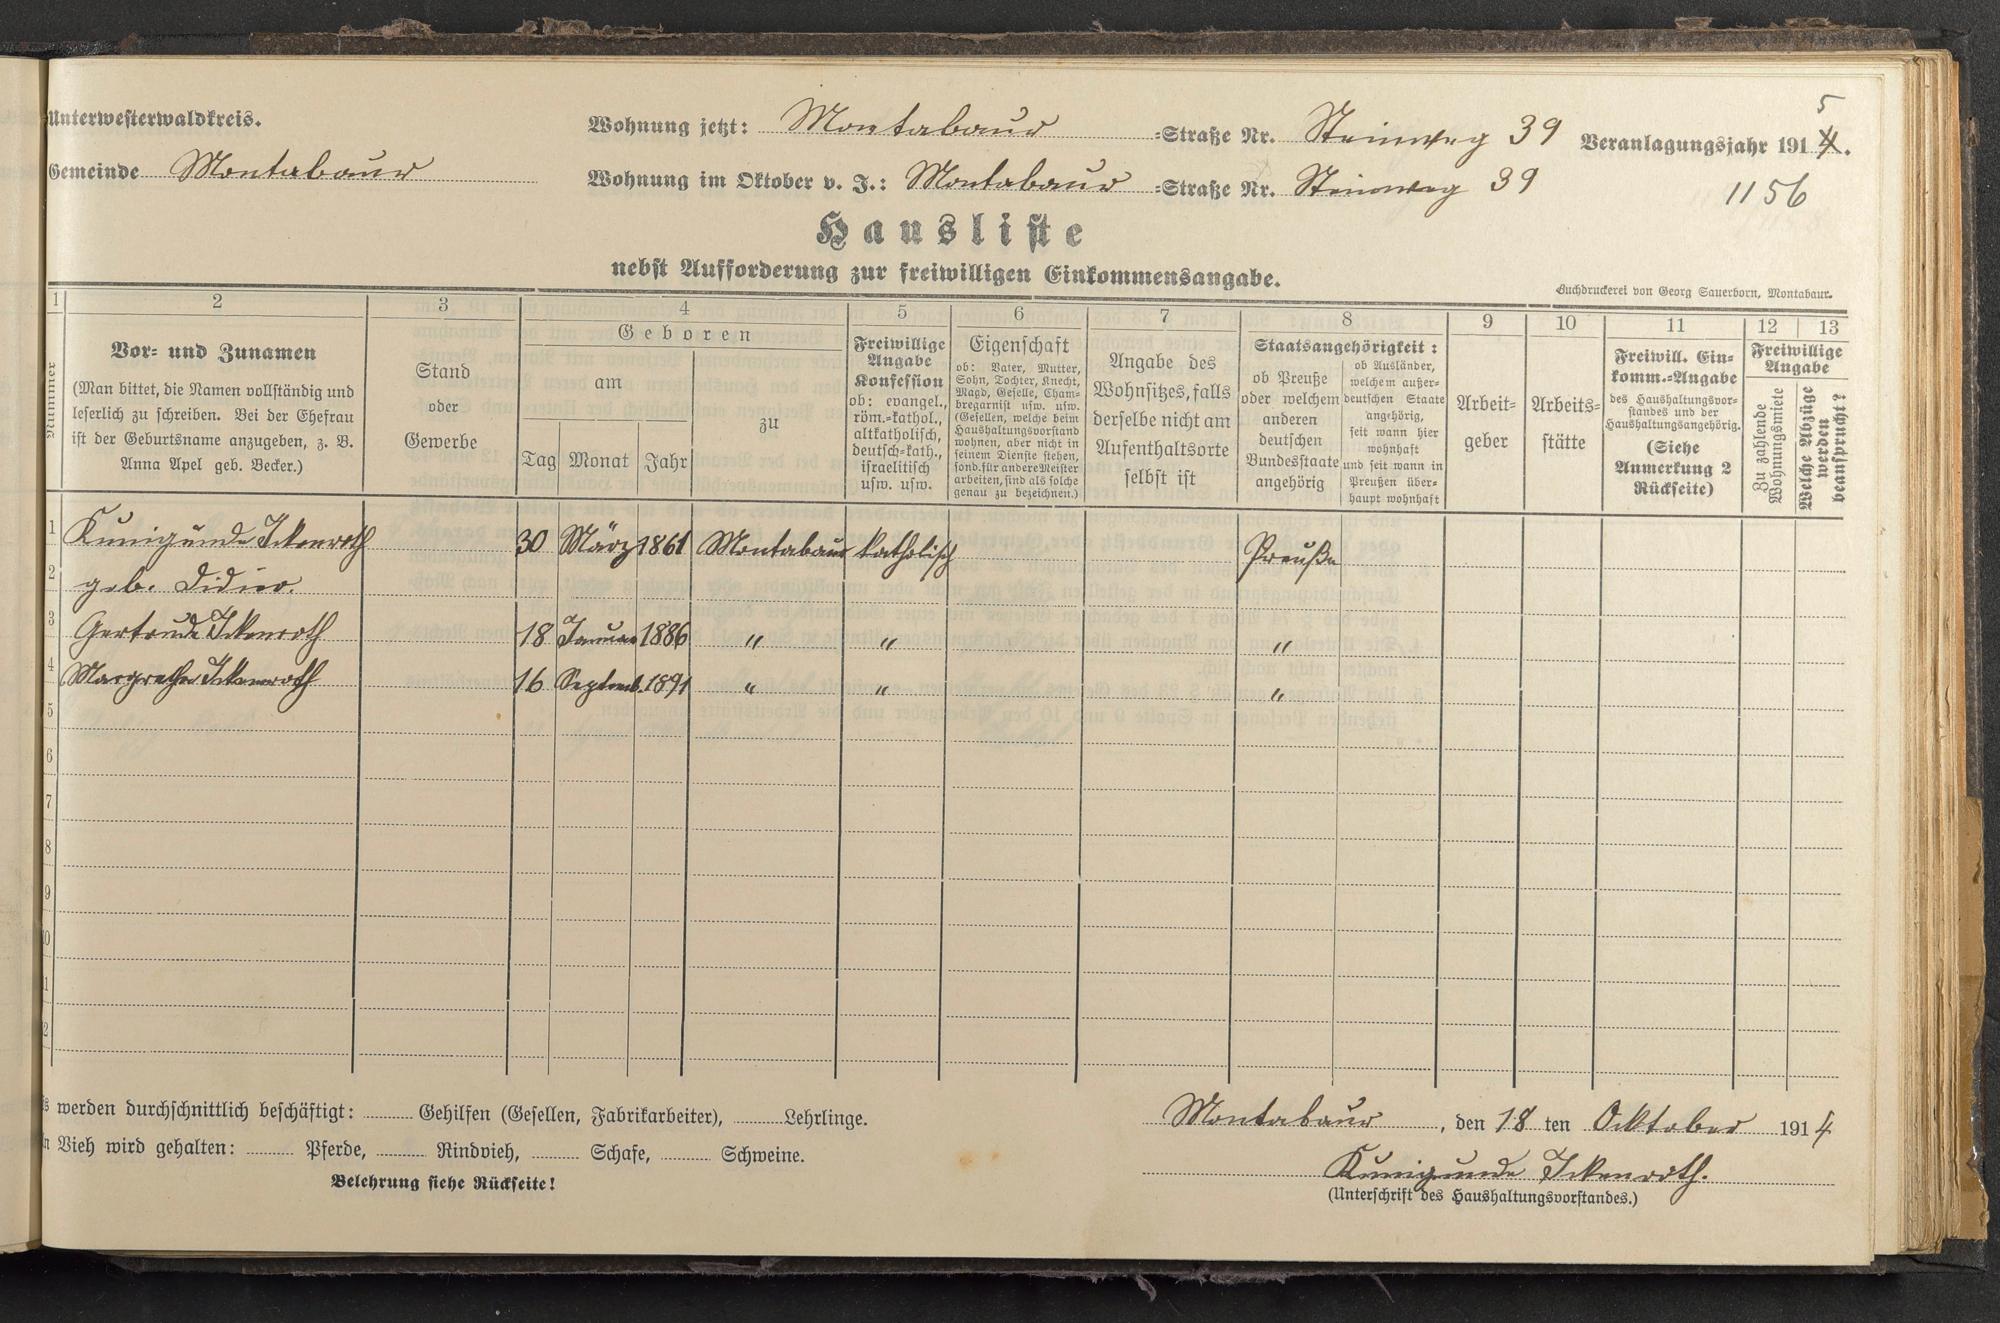 Unterwesterwaldkreis.
Gemeinde Montabaur
Wohnung jetzt: Montabaur =Straße Nr. Steinweg 39
Wohnung im Oktober v. J.: Montabaur =Straße Nr. Steinweg 39
5
Veranlagungsjahr 1914.
1156
Hausliste
nebst Aufforderung zur freiwilligen Einkommensangabe.
Buchdruckerei von Georg Sauerborn, Montabaur.
1 2 3 4 5 6 7 8 9 10 11 12 13
Nummer
Vor= und Zunamen
(Man bittet, die Namen vollständig und
leserlich zu schreiben. Bei der Ehefrau
ist der Geburtsname anzugeben, z. B.
Anna Apel geb. Becker.)
Stand
oder
Gewerbe
Geboren
am
Tag Monat Jahr
zu
Freiwillige
Angabe
Konfession
ob: evangel.,
röm.=kathol.,
altkatholisch,
deutsch=kath.,
israelitisch
usw. usw.
Eigenschaft
ob: Vater, Mutter,
Sohn, Tochter, Knecht,
Magd, Geselle, Cham=
bregarnist usw. usw.
(Gesellen, welche beim
Haushaltungsvorstand
wohnen, aber nicht in
seinem Dienste stehen,
sond. für andere Meister
arbeiten, sind als solche
genau zu bezeichnen.)
Angabe des
Wohnsitzes, falls
derselbe nicht am
Aufenthaltsorte
selbst ist
Staatsangehörigkeit:
ob Preuße
oder welchem
anderen
deutschen
Bundesstaate
angehörig
ob Ausländer,
welchem außer=
deutschen Staate
angehörig,
seit wann hier
wohnhaft
und seit wann in
Preußen über=
haupt wohnhaft
Arbeit=
geber
Arbeits=
stätte
Freiwill. Ein=
komm.=Angabe
des Haushaltungsvor=
standes und der
Haushaltungsangehörig.
(Siehe
Anmerkung 2
Rückseite)
Freiwillige
Angabe
Zu zahlende
Wohnungsmiete
Welche Abzüge
werden
beansprucht?
1 Kunigunde Ickenroth 30 März 1861 Montabaur katholisch Preuße
2 geb. Didier.
3 Gertrude Ickenroth 18 Januar 1886 " " "
4 Margrethe Ickenroth 16 Septemb. 1891 " " "
5
6
7
8
9
10
1
2
s werden durchschnittlich beschäftigt: Gehilfen (Gesellen, Fabrikarbeiter), Lehrlinge.
n Vieh wird gehalten: Pferde, Rindvieh, Schafe, Schweine.
Belehrung siehe Rückseite!
Montabaur, den 18 ten Oktober 1914
Kunigunde Ickenroth.
(Unterschrift des Haushaltungsvorstandes.)